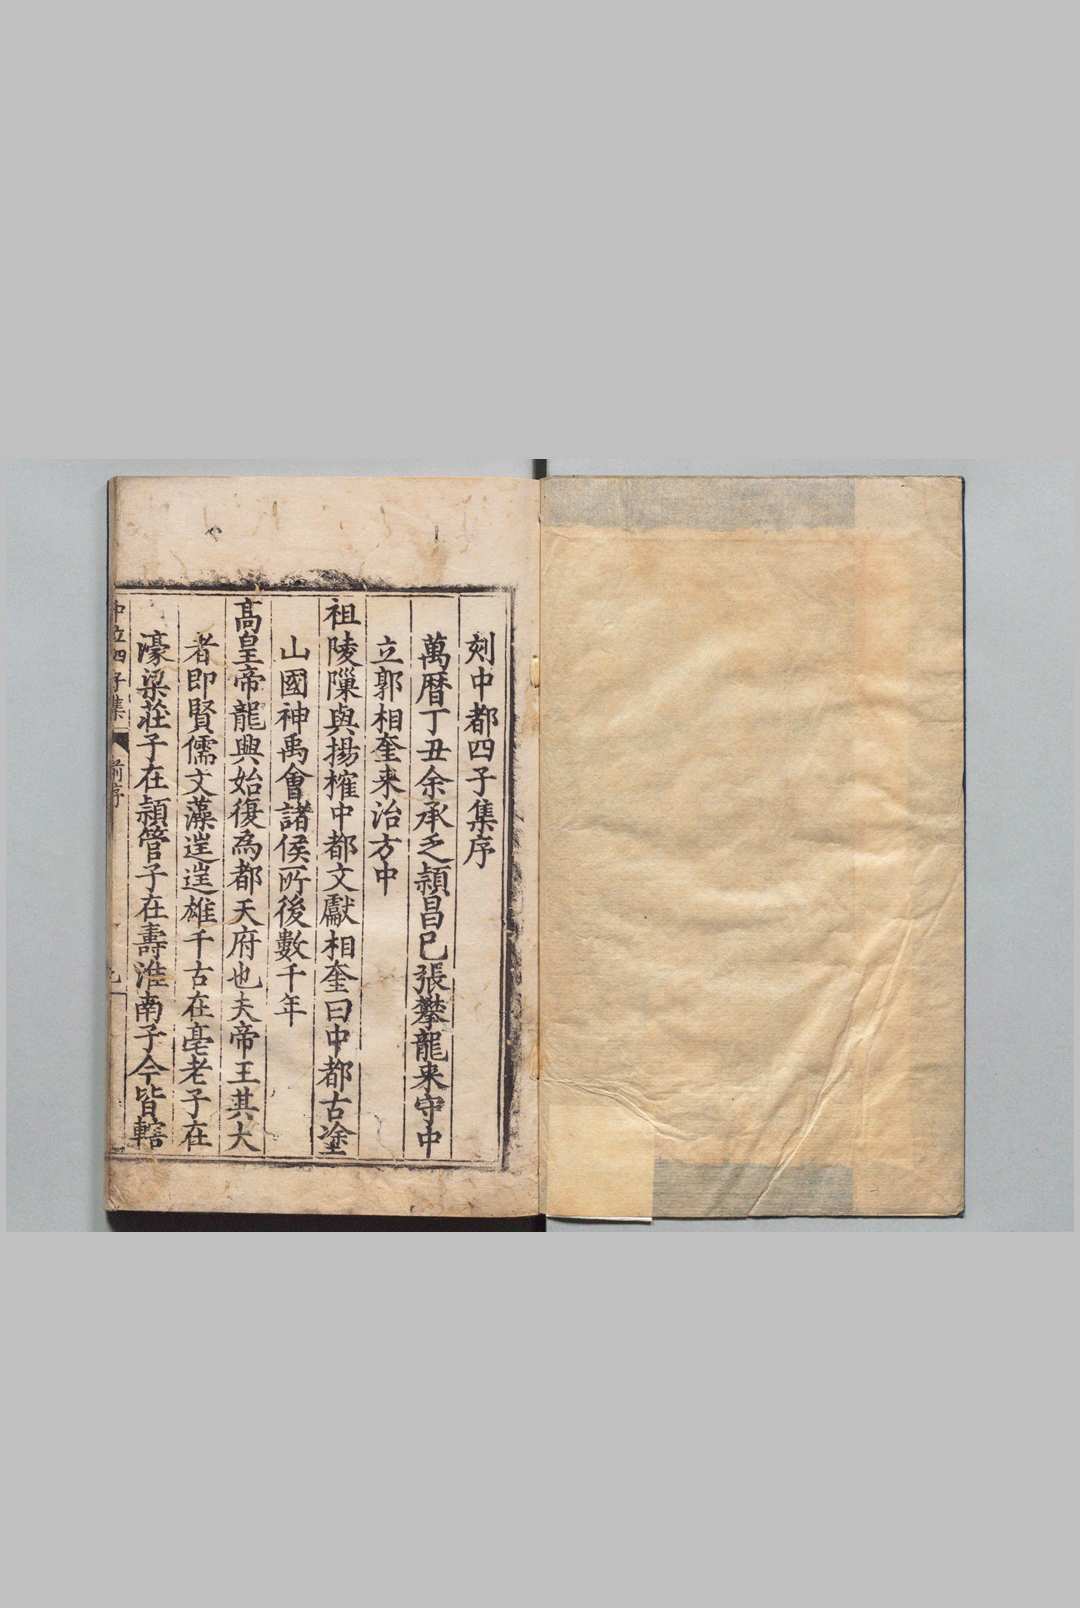 刻中都四子集序
萬曆丁丑余承乏潁昌巳張攀龍來守中
立郭相奎來治方中
祖陵隟與揚榷中都文獻相奎曰中都古塗
山國神禹會諸侯所後數千年
高皇帝龍興始復為都天府也夫帝王其大
者即賢儒文藻逴逴雄千古在亳老子在
濠梁莊子在潁管子在壽淮南子今皆轄
中立四子集
前序